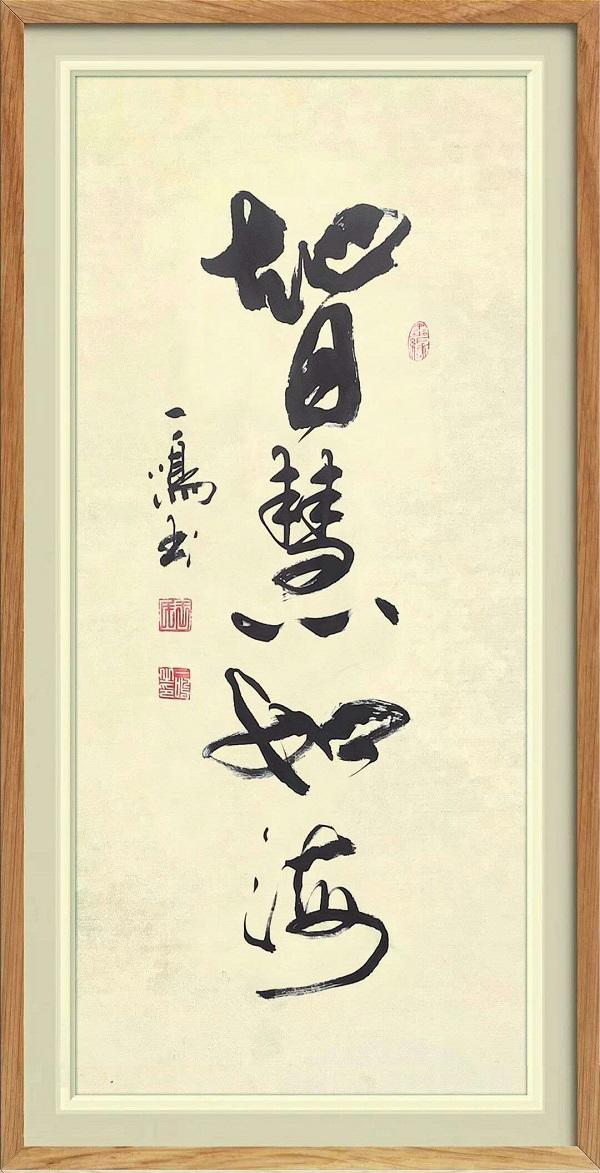 智慧如海
一鸣书